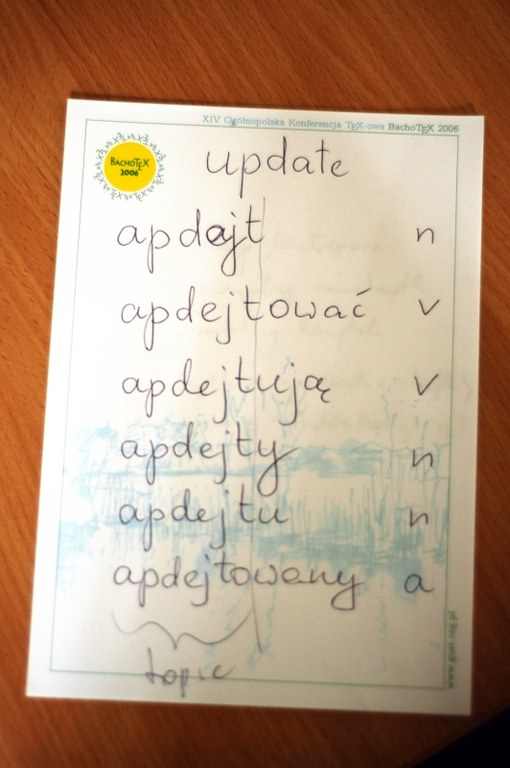 XIV Ogólnopolska Konferencja TEX-owa BachoTEX 2006
BACHOTEX
2006
update
apdejt n
apdejtować v
apdejtują v
apdejty n
apdejtu n
apdejtowany a
topic